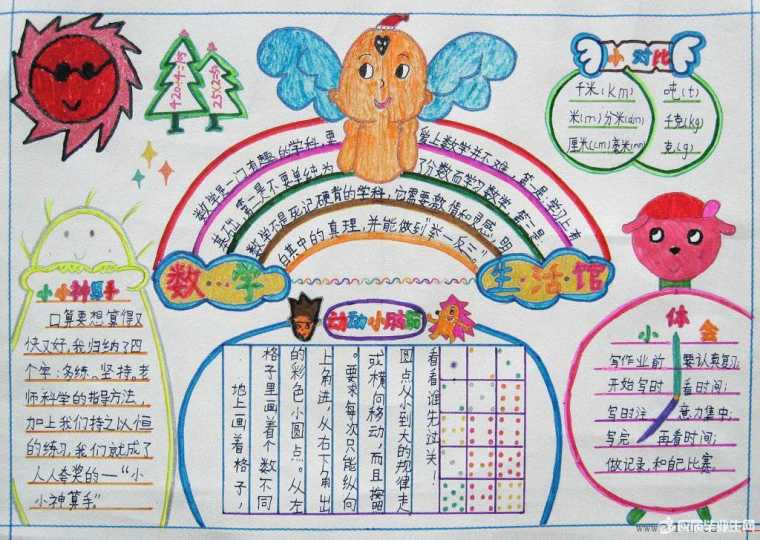 420÷4÷15
25×2=50
小对比
千米(km)
米(m)分米(dm)
厘米(cm)毫米(mm)
吨(t)
千克(kg)
克(kg)
数学是一门有趣的学科,要爱上数学并不难,第一是:学习上有
基础,第二是不要单纯为了分数而学习数学,第三是:
数学不是死记硬背的学科,它需要激情和灵感,明
白其中的真理,并能做到“举一反三”。
数…学
生·活·馆
小小神算手
口算要想算得又
快又好,我归纳了四
个字:多练、坚持。老
师科学的指导方法,
加上我们持之以恒
的练习,我们就成了
人人夸奖的—“小
小神算手”。
动动小脑筋
地上画着格子
格子里画着个数不同
的彩色小圆点。从左
上角进,从右下角出
。要求每次只能纵向
或横向移动,而且按照
圆点从小到大的规律走
看看谁先过关!
小体会
写作业前 要认真复习;
开始写时 看时间;
写时注 意力集中;
写完 再看时间;
做记录,和自己比赛。
应届毕业生网